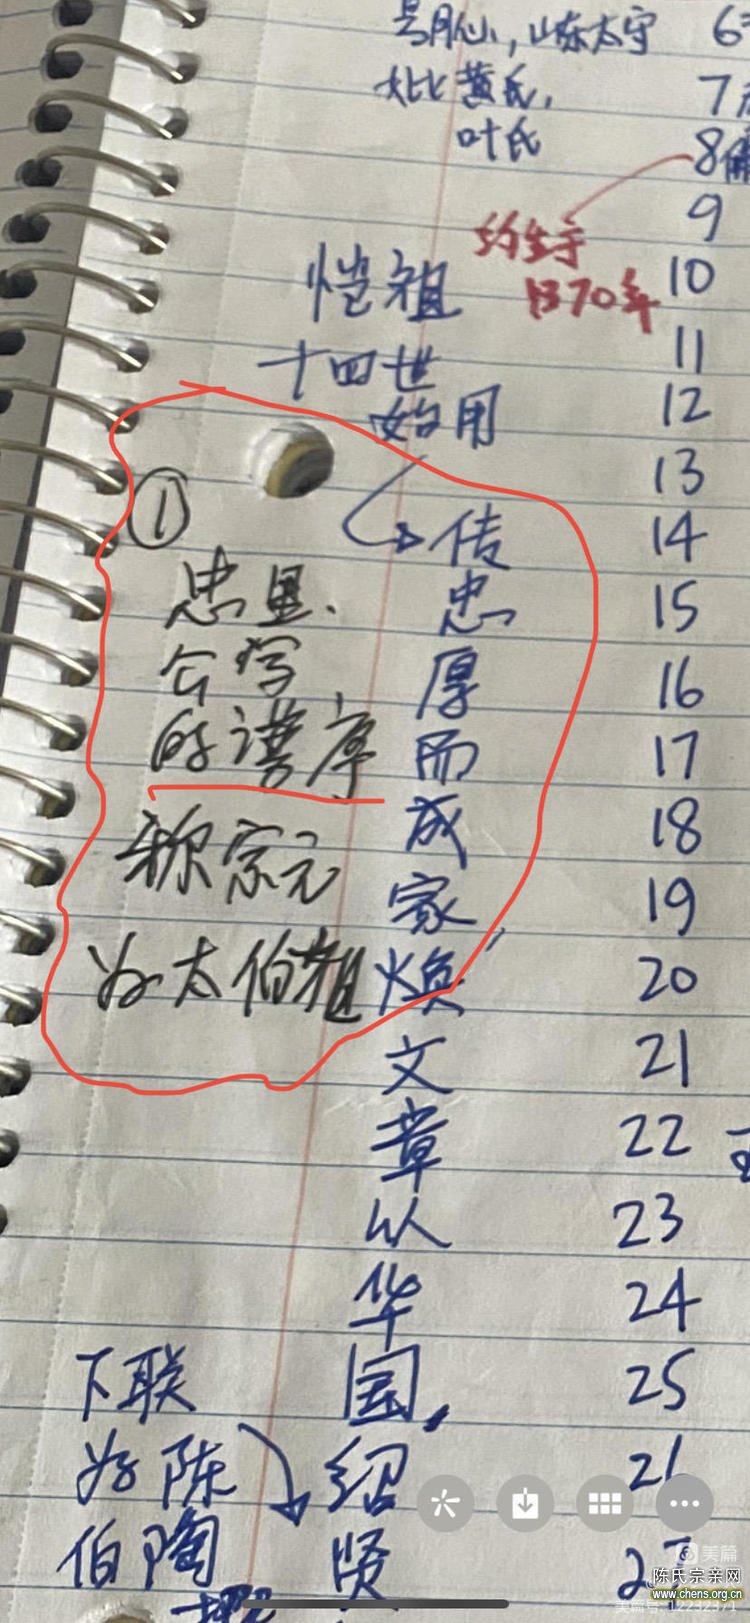 号月仙,山东太守 6
妣黄氏, 7
叶氏 8
约生于 9
1370年 10
恺祖
十四世 11
始用 12
13
① 传 14
忠里、 忠 15
公写 厚 16
的谱序 而 17
成 18
称宗元 家, 19
为太伯祖 焕 20
文 21
章 22
以 23
华 24
下联 国, 25
为陈 绍 26
伯陶 贤 27
撰
美篇
陈氏宗亲网
www.chens.org.cn